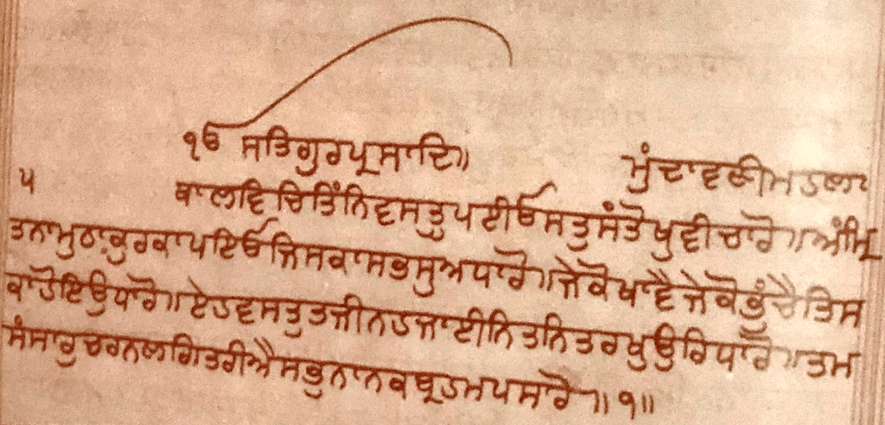 ੴ ਸਤਿਗੁਰਪ੍ਰਸਾਦਿ॥ ਮੁੰਦਾਵਣੀਮਹਲਾ
੫ ਥਾਲਵਿਚਿਤਿੰਨਿਵਸਤੁਪਈਓਸਤੁਸੰਤੋਖੁਵੀਚਾਰੋ॥ਅੰਮ੍ਰਿ
ਤਨਾਮੁਠਾਕੁਰਕਾਪਇਓਜਿਸਕਾਸਭਸੁਅਧਾਰੋ॥ਜੇਕੋਖਾਵੈਜੇਕੋਭੁੰਚੈਤਿਸ
ਕਾਹੋਇਉਧਾਰੋ॥ਏਹਵਸਤੁਤਜੀਨਹਜਾਈਨਿਤਨਿਤਰਖੁਉਰਿਧਾਰੋ॥ਤਮ
ਸੰਸਾਰੁਚਰਨਲਗਿਤਰੀਐਸਭੁਨਾਨਕਬ੍ਰਹਮਪਸਾਰੋ॥੧॥